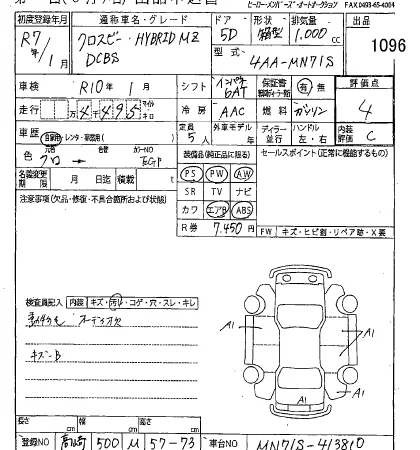 ヒーローメンバーズ・オートオークション FAX 0493-65-4004
初度登録年月 通称車名・グレード ドア 形状 排気量 出品
R7年/1月 クロスビー・HYBRID MZ 5D 箱型 1,000cc
DCBS 型式 4AA-MN71S 1096
車検 R10年 1月 シフト インパネ 6AT 保証書 有・無 評価点
走行 4千495 マイル キロ 冷房 AAC 燃料 ガソリン 4
車歴 自家用・レンタ・事業用 定員 5人 外車モデル 年 ディーラー・並行 ハンドル 左・右 内装評価 C
色 元色 クロ → カラーNO 装備品(純正品に限る) セールスポイント(正常に機能するもの)
名義変更期限 月 日迄 積載 t PS PW AW
注意事項(欠品・修復・不具合箇所および状態) SR TV ナビ
カワ エアB ABS
R券 7,450円 FW キズ・ヒビ割・リペア跡・X要
検査員記入 内装 キズ・汚れ・コゲ・穴・スレ・キレ
オーディオ欠
キズ・B
A1 A1
A1
長さ cm 幅 cm 高さ cm
登録NO 500 ム 57-73 車台NO MN71S-413810